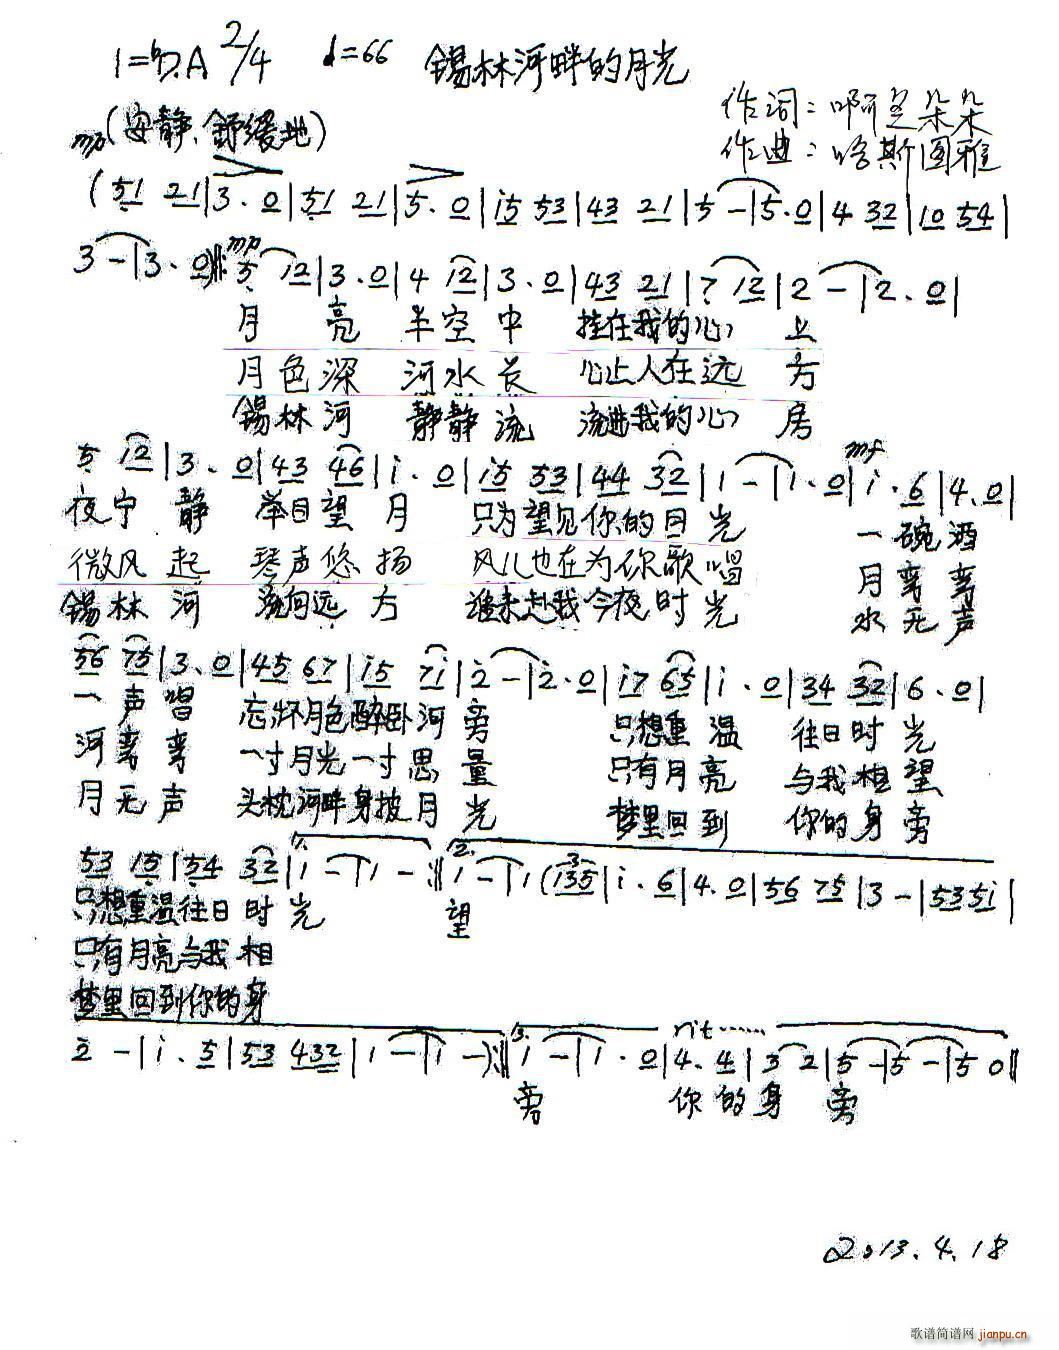 1=ᵇD.A 2/4 ♩=66 锡林河畔的月光
作词：啊芝朵朵
mp(安静、舒缓地)
作曲：哈斯图雅
(51 21|3·0|51 21|5·0|i5 53|43 21|5-|5·0|4 32|10 54|
3-|3·0)‖: mp 5 12|3·0|4 12|3·0|43 21|7 12|2-|2·0|
月亮 半空中 挂在我的心上
月色深 河水长 心上人在远方
锡林河 静静流 流进我的心房
5 12|3·0|43 46|i·0|i5 53|44 32|1-|1·0| mf i·6|4·0|
夜宁静 举目望月 只为望见你的目光 一碗酒
微风起 琴声悠扬 风儿也在为你歌唱 月弯弯
锡林河 流向远方 谁来赴我今夜时光 水无声
56 75|3·0|45 67|i5 7i|2-|2·0|i7 65|i·0|34 32|6·0|
一声唱 忘怀月色醉卧河旁 只想重温 往日时光
河弯弯 一寸月光一寸思量 只有月亮 与我相望
月无声 头枕河畔身披月光 梦里回到 你的身旁
53 15|54 32|1. 1-|1-:‖2. 1-|1(3 135|i·6|4·0|56 75|3-|535i|
只想重温往日时光 望
只有月亮与我相
梦里回到你的身
2-|i·5|53 432|1-|1-):‖3. 1-|1·0| rit…… 4·4|3 2|5-|5-|5 0‖
旁 你的身旁
2013.4.18
歌谱简谱网 jianpu.cn